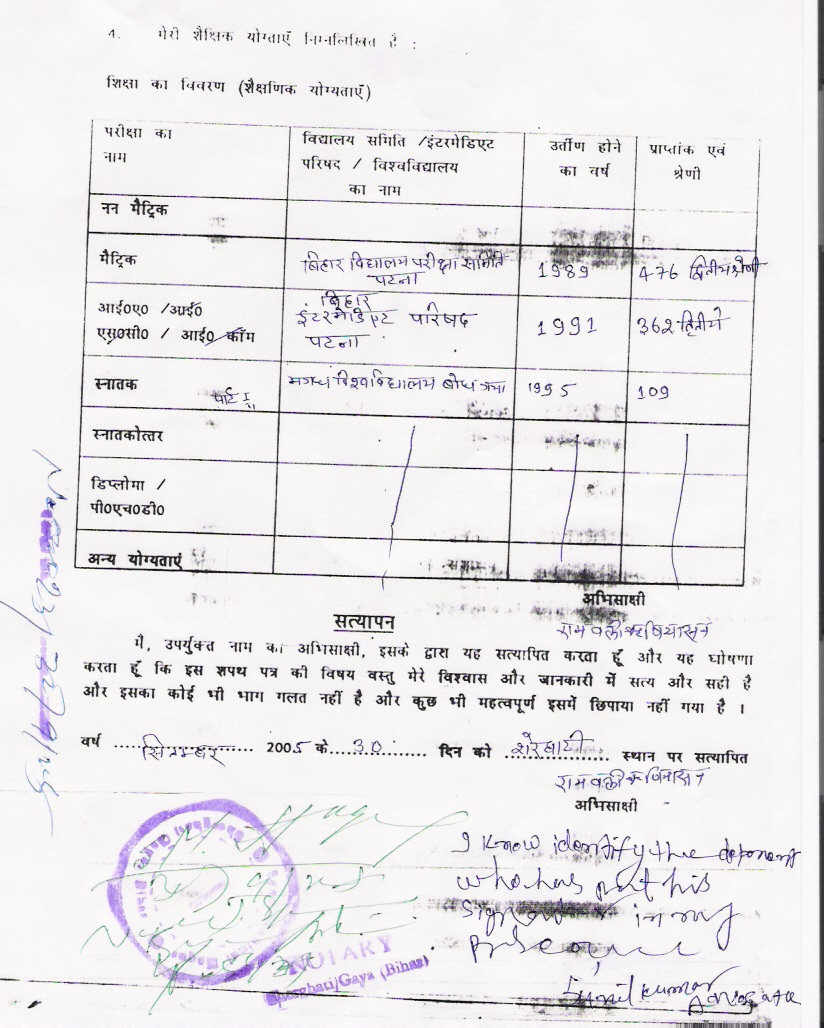 4. मेरी शैक्षिक योग्ताएँ निम्नलिखित है :
शिक्षा का विवरण (शैक्षणिक योग्यताएँ)
परीक्षा का नाम
विद्यालय समिति /इंटरमेडिएट
परिषद / विश्वविद्यालय
का नाम
उर्तीण होने
का वर्ष
प्राप्तांक एवं
श्रेणी
नन मैट्रिक
मैट्रिक
बिहार विद्यालय परीक्षा समिति
पटना
1989
476 द्वितीय श्रेणी
आई०ए० /आई०
एस०सी० / आई० कॉम
बिहार
इंटरमेडिएट परिषद
पटना
1991
362 द्वितीय
स्नातक
पार्ट I
मगध विश्वविद्यालय बोध गया
1995
109
स्नातकोत्तर
डिप्लोमा /
पी०एच०डी०
अन्य योग्यताएं
अभिसाक्षी
सत्यापन
मै, उपर्युक्त नाम का अभिसाक्षी, इसके द्वारा यह सत्यापित करता हूँ और यह घोषणा
करता हूँ कि इस शपथ पत्र की विषय वस्तु मेरे विश्वास और जानकारी में सत्य और सही है
और इसका कोई भी भाग गलत नहीं है और कुछ भी महत्वपूर्ण इसमें छिपाया नहीं गया है ।
वर्ष सितम्बर 2005 के 30 दिन को शेरघाटी स्थान पर सत्यापित
अभिसाक्षी
I know identify the deponent
who has put his
in my
Sunil Kumar
Advocate
NOTARY
Sherghati/Gaya (Bihar)